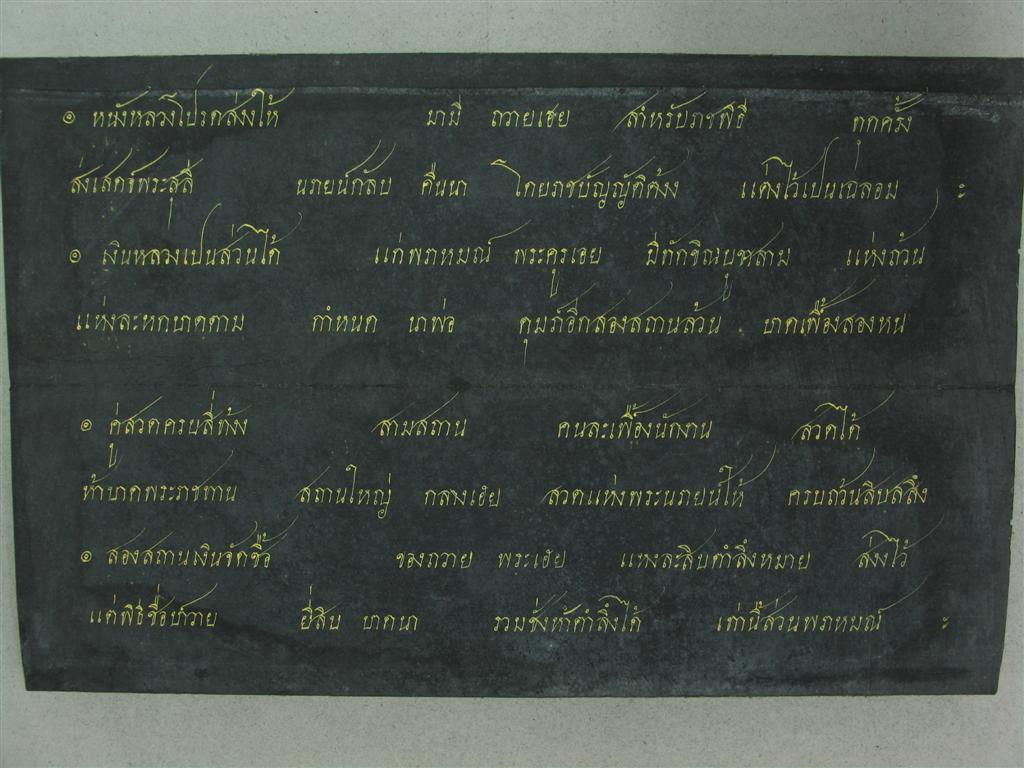 ๏ หนังหลวงโปรดส่งให้ มามี ถวายเฮย สำหรับราชพิธี ทุกครั้ง
ส่งเสดจ์พระสุลี นรายน์กลับ คืนนา โดยราชบัญญัติต้งง แต่งไว้เปนเฉลอม ะ
๏ เงินหลวงเปนส่วนได้ แก่พราหมณ์ พระครูเอย มีทักขิณบูชสาม แห่งถ้วน
แห่งละหกบาทตาม กำหนด นาพ่อ คุมภ์อีกสองสถานล้วน บาทเฟื้องสองหน
๏ คู่สวดครบสี่ท้งง สามสถาน คนละเฟื้องนักงาน สวดได้
ห้าบาทพระราชทาน สถานใหญ่ กลางเฮย สวดแห่งพระนรายน์ให้ ครบถ้วนสิบสลึง
๏ สองสถานเงินจัดซื้อ ของถวาย พระเฮย แห่งละสิบตำลึงหมาย ส่งงไว้
แด่พิธีชื่อบ์วาย ยี่สิบ บาดนา รวมชั่งห้าตำลึงได้ เท่านี้ส่วนพราหมณ์ ะ